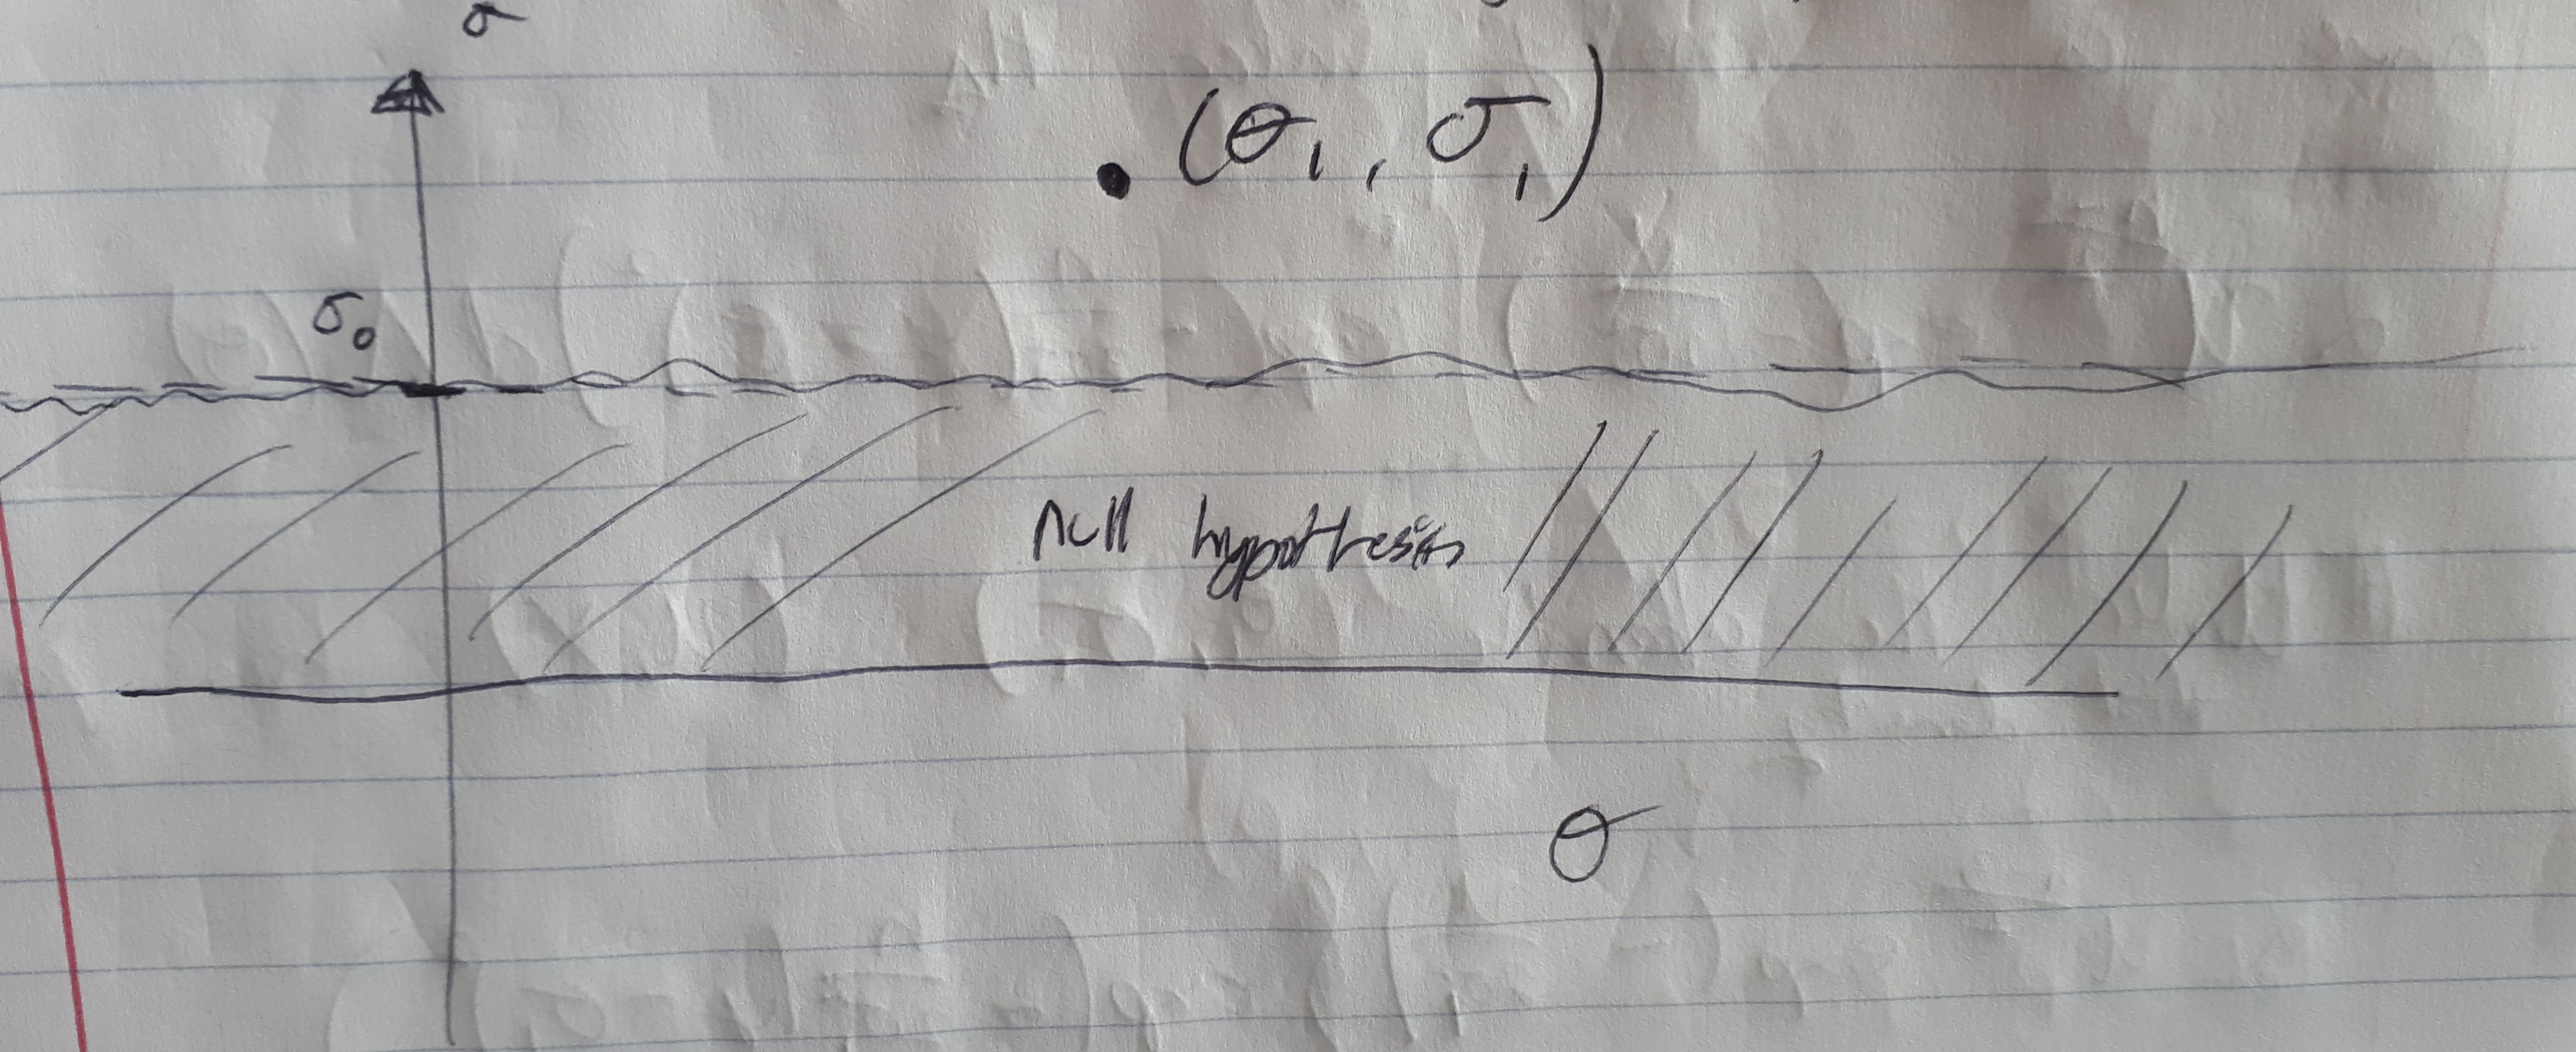 σ
(θ₁, σ₁)
σ₀
Null hypothesis
θ